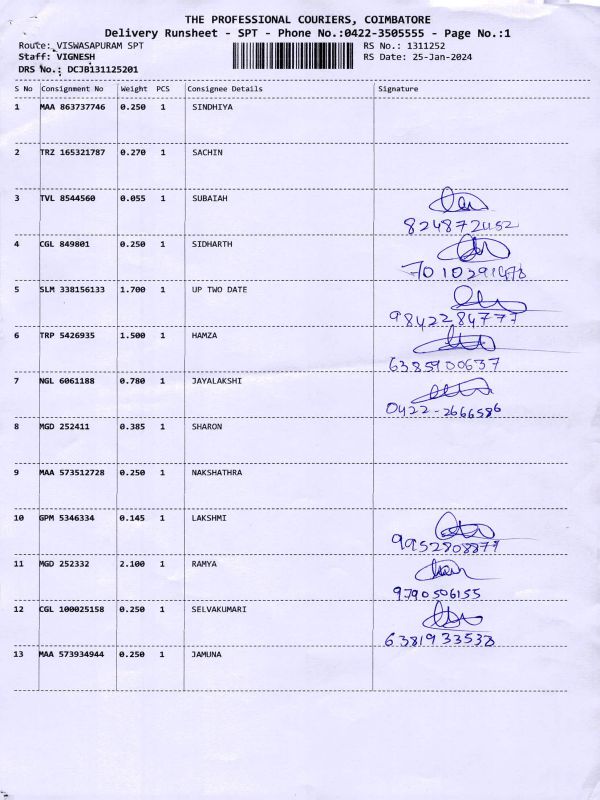 THE PROFESSIONAL COURIERS, COIMBATORE
Delivery Runsheet - SPT - Phone No.:0422-3505555 - Page No.:1
Route: VISWASAPURAM SPT RS No.: 1311252
Staff: VIGNESH RS Date: 25-Jan-2024
DRS No.: DCJB131125201
S No Consignment No Weight PCS Consignee Details Signature
1 MAA 863737746 0.250 1 SINDHIYA
2 TRZ 165321787 0.270 1 SACHIN
3 TVL 8544560 0.055 1 SUBAIAH
8248772052
4 CGL 849801 0.250 1 SIDHARTH
7010291478
5 SLM 338156133 1.700 1 UP TWO DATE
9842284777
6 TRP 5426935 1.500 1 HAMZA
6385900637
7 NGL 6061188 0.780 1 JAYALAKSHI
0422-2666586
8 MGD 252411 0.385 1 SHARON
9 MAA 573512728 0.250 1 NAKSHATHRA
10 GPM 5346334 0.145 1 LAKSHMI
9952808877
11 MGD 252332 2.100 1 RAMYA
9790506155
12 CGL 100025158 0.250 1 SELVAKUMARI
6381933538
13 MAA 573934944 0.250 1 JAMUNA